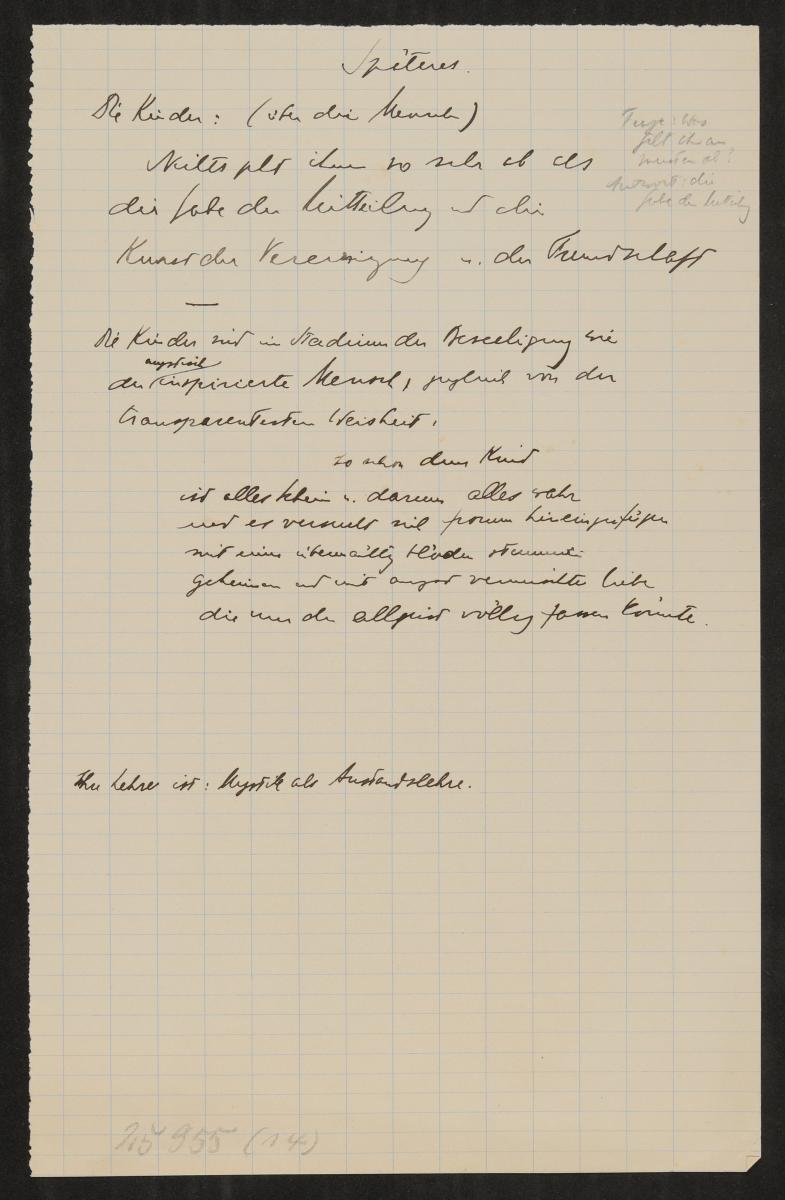 Späteres.
Die Kinder: (über die Menschen)
Frage: Was
geht ihnen am
meisten ab?
Antwort: die
Gabe der Mitteilung
Nichts geht ihnen so sehr ab als
die Gabe der Mitteilung und die
Kunst der Vereinigung u. der Freundschaft
—
Die Kinder sind im Stadium der Beseeligung wie
mystisch
der inspirierte Mensch, zugleich von der
transparentesten Weisheit.
so schon dem Kind
ist alles Schein u. darum alles wahr
und es versucht sich hineinzufügen
mit einem übermäßig
geheimen und mit Angst vermischte Liebe
die nur der Allgeist völlig fassen könnte.
Ihre Lehre ist: Mystik als Anstandslehre.
25 955 (14)